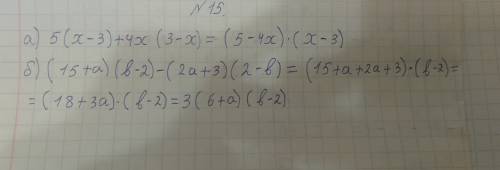 №15.
а) 5(x-3)+4x(3-x)=(5-4x)·(x-3)
б) (15+a)(b-2)-(2a+3)(2-b)=(15+a+2a+3)·(b-2)=
=(18+3a)·(b-2)=3(6+a)(b-2)